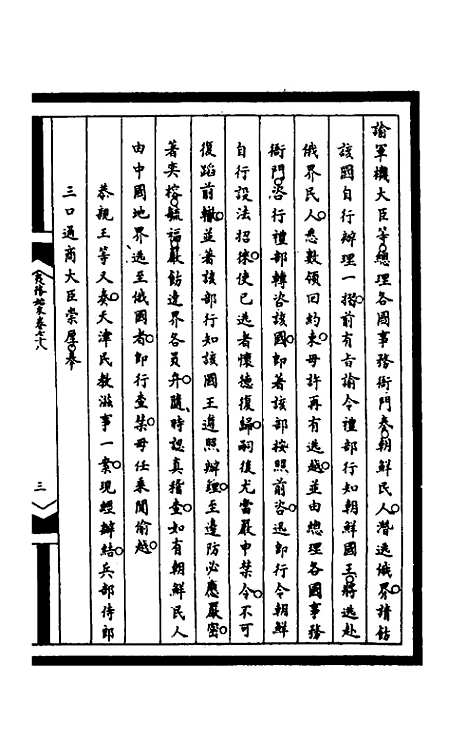 諭軍機大臣等總理各國事務衙門奏朝鮮民人潛逃俄界請飭
該國自行辦理一摺前有旨諭令禮部行知朝鮮國王將逃赴
俄界民人悉數領回約束毋許再有逃越並由總理各國事務
衙門咨行禮部轉咨該國即著該部按照前咨迅即行令朝鮮
自行設法招徠使已逃者懷德復歸嗣後尤當嚴申禁令不可
復蹈前轍並著該部行知該國王遵照辦理至邊防必應嚴密
著奕榕毓福嚴飭邊界各員弁隨時認真稽查如有朝鮮民人
由中國地界逃至俄國者即行查禁毋任乘間偷越
恭親王等又奏天津民教滋事一案現經辦結兵部侍郎
三口通商大臣崇厚奉
夷務始末卷七十八
三